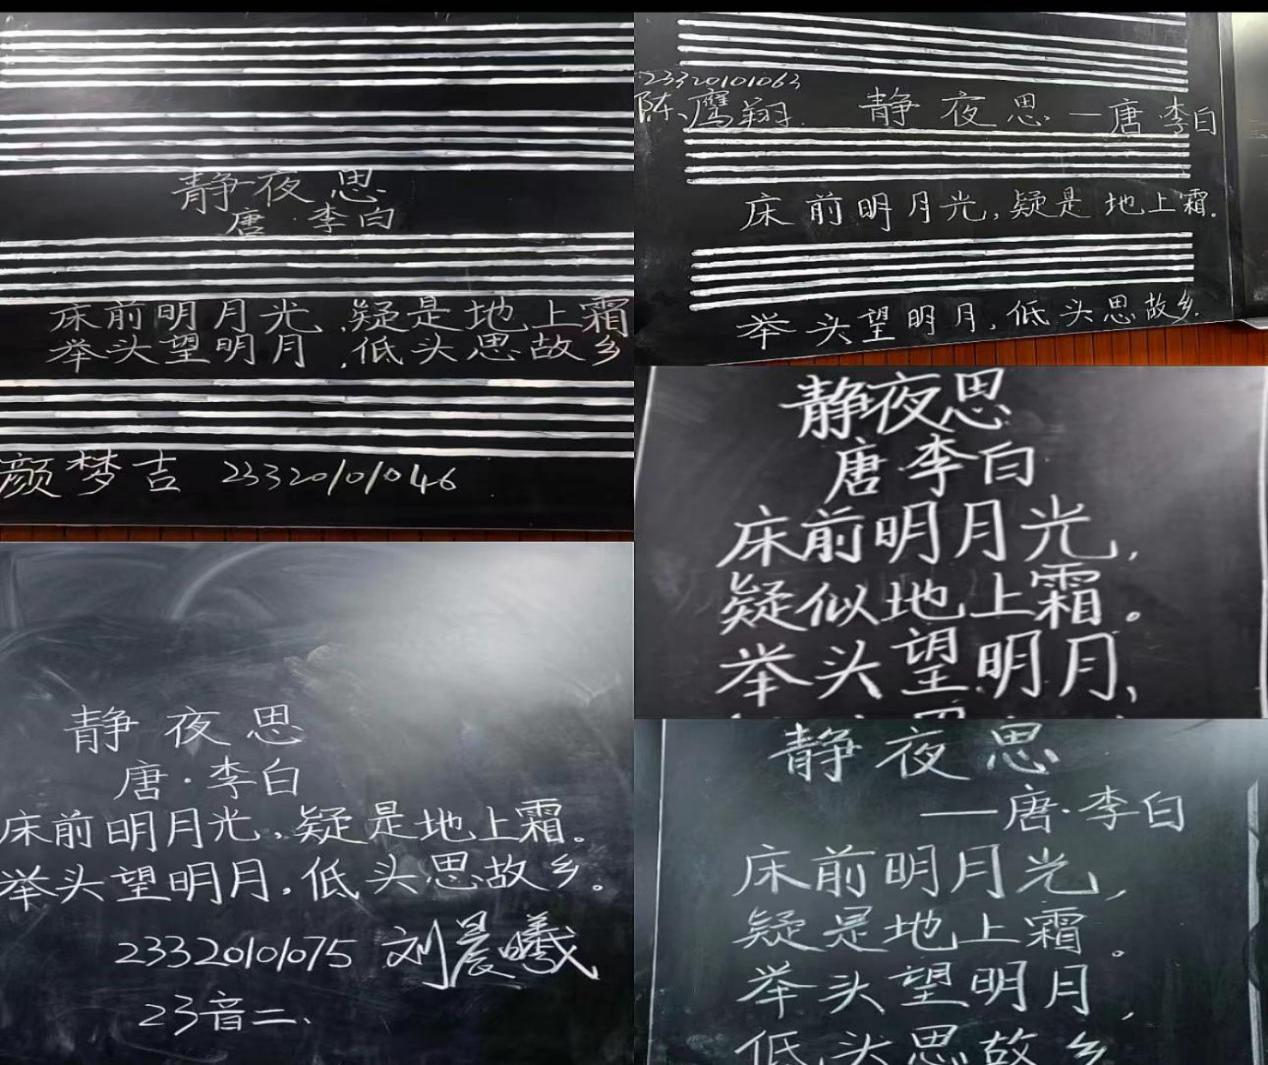 静夜思
唐·李白
床前明月光,疑是地上霜
举头望明月,低头思故乡
颜梦吉 23320101046
23320101063
陈鹰翔 静夜思—唐李白
床前明月光,疑是地上霜.
举头望明月,低头思故乡.
静夜思
唐·李白
床前明月光,
疑似地上霜。
举头望明月,
静夜思
唐·李白
床前明月光,疑是地上霜。
举头望明月,低头思故乡。
23320101075 刘晨曦
23音二、
静夜思
—唐·李白
床前明月光,
疑是地上霜。
举头望明月,
低头思故乡